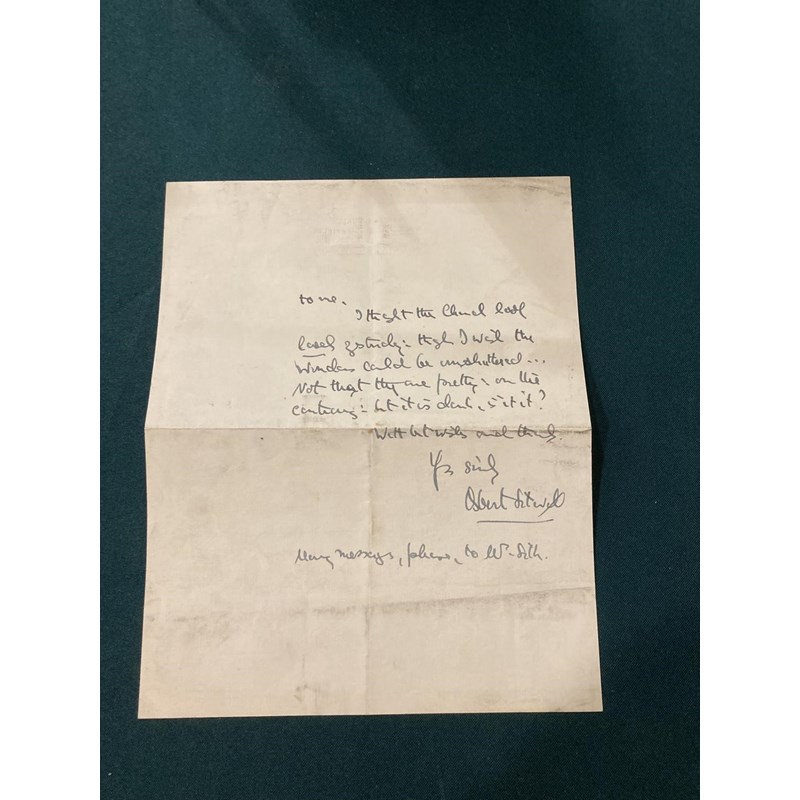 to me.
I thought the Church looked
lovely yesterday: though I wish the
windows could be unshuttered...
Not that they are pretty: on the
contrary: but it is dark, isn't it?
With best wishes and thanks.
Yrs sincly
Osbert Sitwell
Many messages, please, to